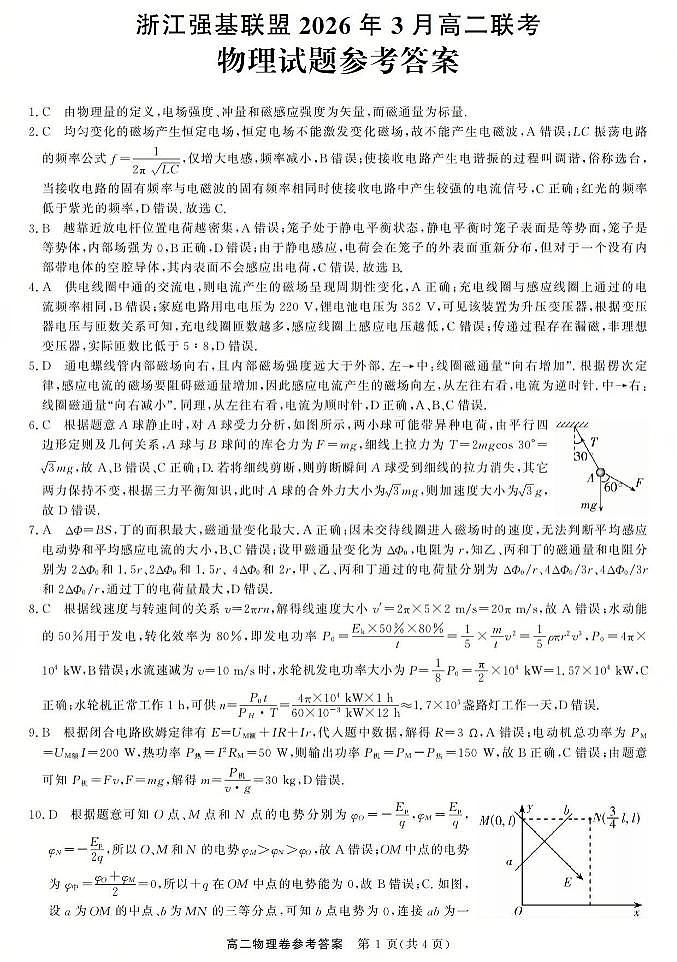 浙江强基联盟 2026 年 3 月高二联考
物理试题参考答案
1. C 由物理量的定义,电场强度、冲量和磁感应强度为矢量,而磁通量为标量.
2. C 均匀变化的磁场产生恒定电场,恒定电场不能激发变化磁场,故不能产生电磁波,A 错误;LC 振荡电路
的频率公式 f=1/(2π√LC),仅增大电感,频率减小,B 错误;使接收电路产生电谐振的过程叫调谐,俗称选台,
当接收电路的固有频率与电磁波的固有频率相同时使接收电路中产生较强的电流信号,C 正确;红光的频率
低于紫光的频率,D 错误. 故选 C.
3. B 越靠近放电杆位置电荷越密集,A 错误;笼子处于静电平衡状态,静电平衡时笼子表面是等势面,笼子是
等势体,内部场强为 0,B 正确,D 错误;由于静电感应,电荷会在笼子的外表面重新分布,但对于一个没有内
部带电体的空腔导体,其内表面不会感应出电荷,C 错误. 故选 B.
4. A 供电线圈中通的交流电,则电流产生的磁场呈现周期性变化,A 正确;充电线圈与感应线圈上通过的电
流频率相同,B 错误;家庭电路用电电压为 220 V,锂电池电压为 352 V,可见该装置为升压变压器,根据变压
器电压与匝数关系可知,充电线圈匝数越多,感应线圈上感应电压越低,C 错误;传递过程存在漏磁,非理想
变压器,实际匝数比低于 5∶8,D 错误.
5. D 通电螺线管内部磁场向右,且内部磁场强度远大于外部. 左→中:线圈磁通量“向右增加”. 根据楞次定
律,感应电流的磁场要阻碍磁通量增加,因此感应电流产生的磁场向左,从左往右看,电流为逆时针. 中→右:
线圈磁通量“向右减小”. 同理,从左往右看,电流为顺时针,D 正确,A、B、C 错误.
6. C 根据题意 A 球静止时,对 A 球受力分析,如图所示,两小球可能带异种电荷,由平行四
边形定则及几何关系,A 球与 B 球间的库仑力为 F=mg,细线上拉力为 T=2mgcos 30°=
√3mg,故 A、B 错误、C 正确;D. 若将细线剪断,则剪断瞬间 A 球受到细线的拉力消失,其它
两力保持不变,根据三力平衡知识,此时 A 球的合外力大小为√3mg,则加速度大小为√3g,
故 D 错误.
T
30
A
60
F
mg
7. A ΔΦ=BS,丁的面积最大,磁通量变化最大. A 正确;因未交待线圈进入磁场时的速度,无法判断平均感应
电动势和平均感应电流的大小,B、C 错误;设甲磁通量变化为 ΔΦ₀,电阻为 r,知乙、丙和丁的磁通量和电阻分
别为 2ΔΦ₀ 和 1.5r、2ΔΦ₀ 和 1.5r、4ΔΦ₀ 和 2r,甲、乙、丙和丁通过的电荷量分别为 ΔΦ₀/r、4ΔΦ₀/3r、4ΔΦ₀/3r
和 2ΔΦ₀/r,通过丁的电荷量最大,D 错误.
8. C 根据线速度与转速间的关系 v=2πrn,解得线速度大小 v′=2π×5×2 m/s=20π m/s,故 A 错误;水动能
的 50%用于发电,转化效率为 80%,即发电功率 P₀=Eₖ×50%×80%/t=1/5×m/t v²=1/5 ρπr²v³,P₀=4π×
10⁴ kW,B 错误;水流速减为 v=10 m/s 时,水轮机发电功率大小为 P=1/8 P₀=π/2×10⁴ kW=1.57×10⁴ kW,C
正确;水轮机正常工作 1 h,可供 n=P₀t/(P_H·T)=4π×10⁴ kW×1 h/(60×10⁻³ kW×12 h)≈1.7×10⁵盏路灯工作一天,D 错误.
9. B 根据闭合电路欧姆定律有 E=U_M额+IR+Ir,代入题中数据,解得 R=3 Ω,A 错误;电动机总功率为 P_M
=U_M额I=200 W,热功率 P热=I²R_M=50 W,则输出功率 P机=P_M−P热=150 W,故 B 正确,C 错误;由题意
可知 P机=Fv,F=mg,解得 m=P机/(v·g)=30 kg,D 错误.
10. D 根据题意可知 O 点、M 点和 N 点的电势分别为 φ_O=−Eₚ/q,φ_M=Eₚ/q,
φ_N=−Eₚ/2q,所以 O、M 和 N 的电势 φ_M>φ_N>φ_O,故 A 错误;OM 中点的电势
为 φ中=(φ_O+φ_M)/2=0,所以+q 在 OM 中点的电势能为 0,故 B 错误;C. 如图,
设 a 为 OM 的中点、b 为 MN 的三等分点,可知 b 点电势为 0,连接 ab 为一
y
M(0,l)
b
N(3/4 l,l)
a
E
O
x
高二物理卷参考答案 第 1 页(共 4 页)